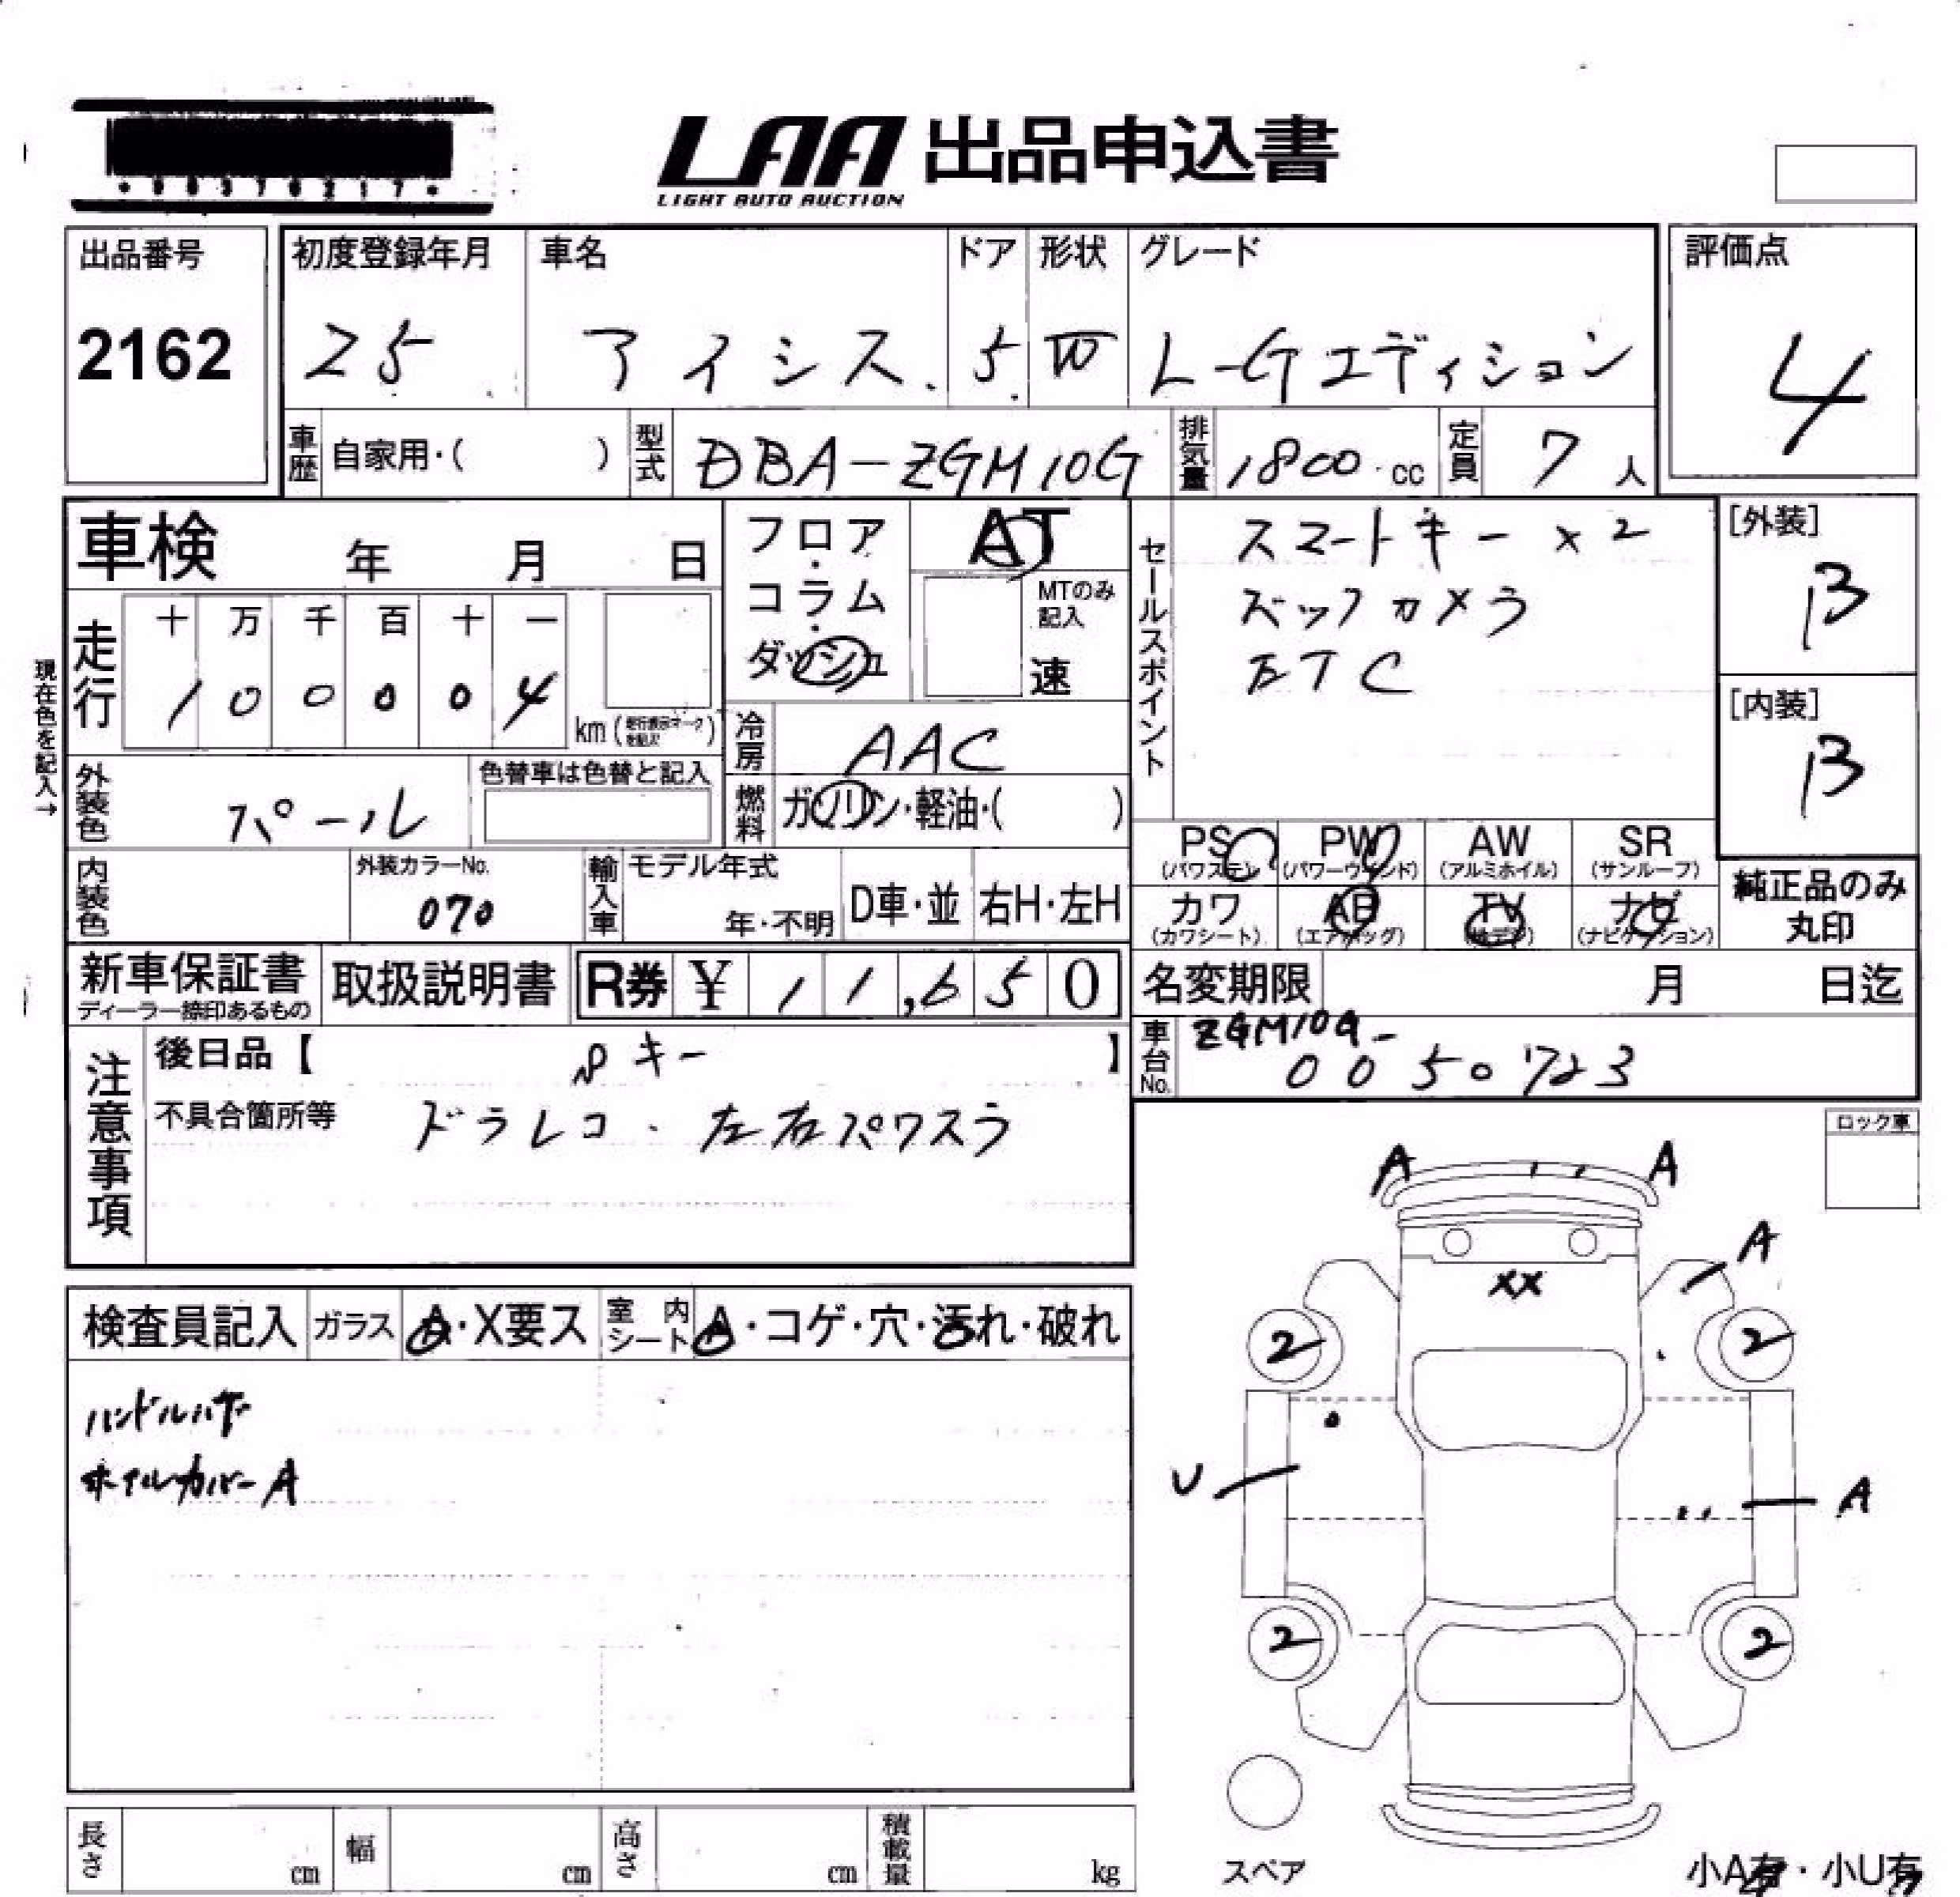 LAA 出品申込書
LIGHT AUTO AUCTION
出品番号
2162
初度登録年月 車名 ドア 形状 グレード
25 アイシス 5 W L-Gエディション
評価点
4
車歴 自家用・( ) 型式 DBA-ZGM10G 排気量 1800 cc 定員 7 人
車検 年 月 日
フロア・コラム・ダッシュ
AT
MTのみ記入
速
セールスポイント
スマートキー×2
バックカメラ
ETC
[外装]
B
[内装]
B
現在色を記入→
走行 十 万 千 百 十 一
1 0 0 0 0 4
km (走行表示マークを記入)
冷房 AAC
燃料 ガソリン・軽油・( )
外装色 パール
色替車は色替と記入
内装色
外装カラーNo.
070
輸入車 モデル年式
年・不明 D車・並 右H・左H
PS (パワステ) PW (パワーウインド) AW (アルミホイル) SR (サンルーフ)
カワ (カワシート) AB (エアバッグ) TV (地デジ) ナビ (ナビゲーション)
純正品のみ
丸印
新車保証書
ディーラー捺印あるもの
取扱説明書
R券 ¥ 11,650
名変期限 月 日迄
車台No. ZGM10G-
0050723
注意事項
後日品【 キー 】
不具合箇所等 ドラレコ. 左右パワスラ
ロック車
検査員記入 ガラス A・X要ス 室内シート A・コゲ・穴・汚れ・破れ
ハンドルハゲ
ホイルカバーA
A A
A
XX
2 2
U A
2 2
スペア
小A有・小U有
長さ cm 幅 cm 高さ cm 積載量 kg